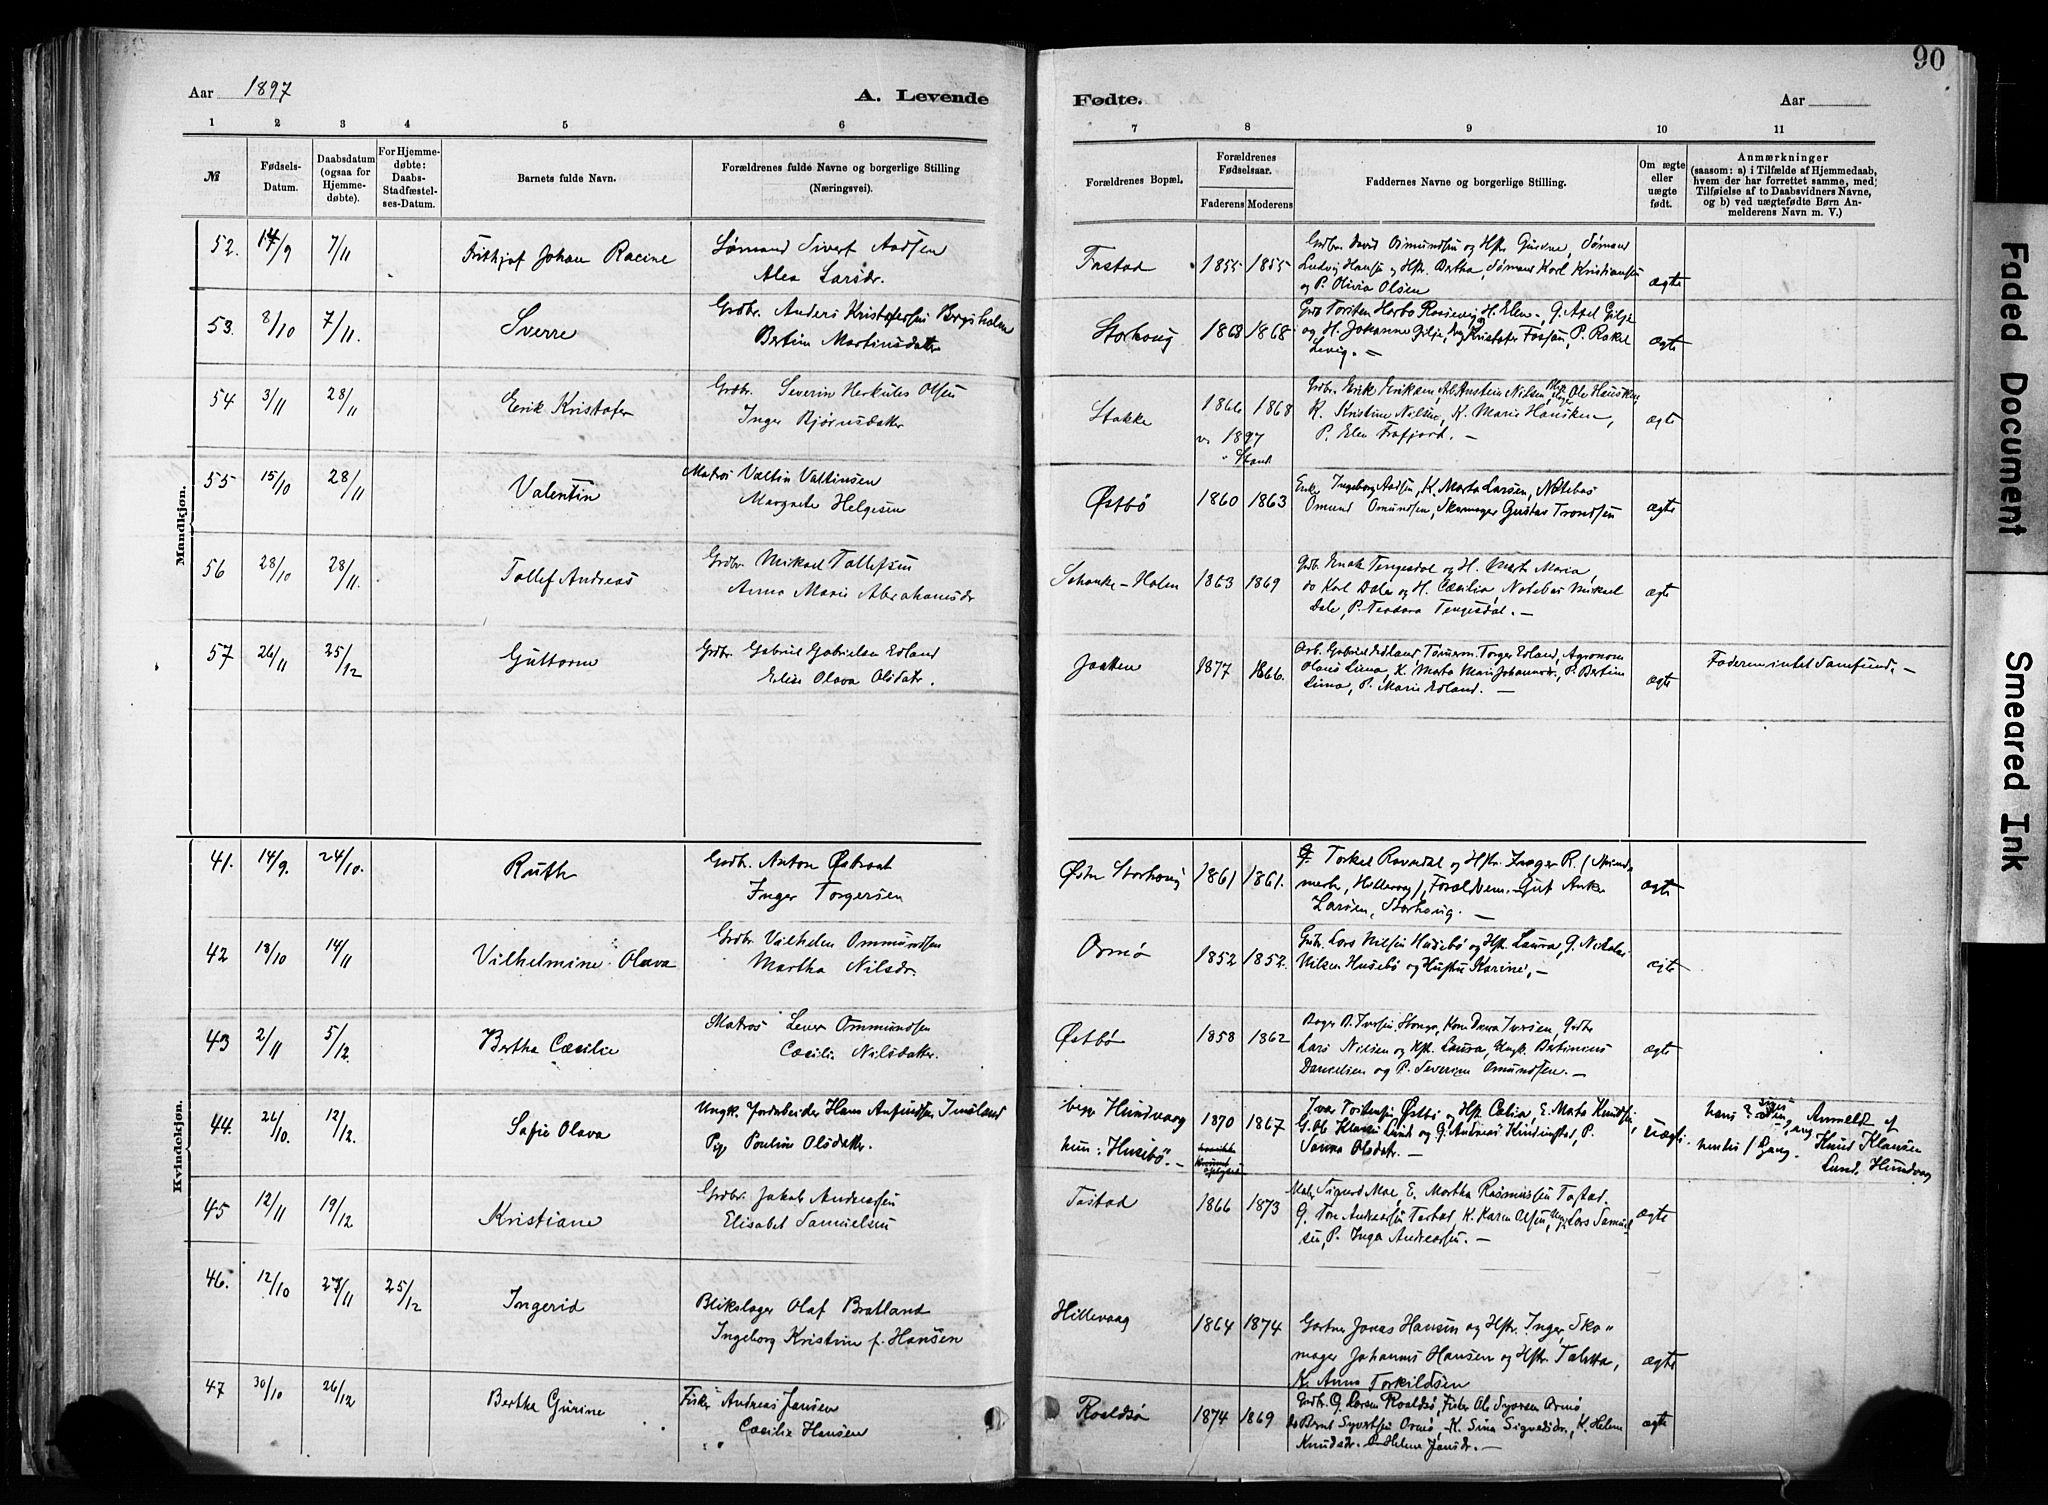 90
Aar 1897
A. Levende
Fødte.
Aar
1 2 3 4 5 6 7 8 9 10 11
№
Fødsels-
Datum.
Daabsdatum
(ogsaa for
Hjemme-
døbte).
For Hjemme-
døbte:
Daabs-
Stadfæstel-
ses-Datum.
Barnets fulde Navn.
Forældrenes fulde Navne og borgerlige Stilling
(Næringsvei).
Forældrenes Bopæl.
Forældrenes
Fødselsaar.
Faderens
Moderens
Faddernes Navne og borgerlige Stilling.
Om ægte
eller
uægte
født.
Anmærkninger
(saasom: a) i Tilfælde af Hjemmedaab,
hvem der har forrettet samme, med
Tilføielse af to Daabsvidners Navne,
og b) ved uægtefødte Børn An-
melderens Navn m. V.)
Mandkjøn.
52. 14/9 7/11 Frithjof Johan Racine
Sømand Sivert Aadsen
Alea Larsdr.
Tastad 1855 1855
Grdbr. David Osmundsen og Hstr. Gurine, Sømand
Ludvig Hansen og Hstr. Bertha, Sømand Karl Kristiansen
og P. Olivia Olsen
ægte
53. 8/10 7/11. Sverre
Grdbr. Anders Kristofersen
Bertine Martinsdatter
Storhoug 1868 1868
og H. Johanne Gilje, Ung. Kristofer P. Rakel
ægte
54 3/11 28/11 Erik Kristofer
Grdbr. Severin Herkules Olsen
Inger Bjørnsdatter
Stokke 1866 1868
1897
Grdbr. Erik Eriksen, Nilsen, Ole Hausken,
K. Kristine Nilsen, K. Marie Hausken,
P. Elen Frafjord. —
ægte
55 15/10 28/11 Valentin
Matros Valtin Valtinsen
Margrete Helgesen
Østbø 1860 1863
Enke Ingeborg Aadsen, K. Marta Larsen, Nötebas
Omund Omundsen, Skomager Gustav Trondsen
ægte
56 28/10 28/11. Tollef Andreas
Grdbr. Mikael Tollefsen
Anna Marie Abrahamsdr
Schanke-Holen 1863 1869
Grdb. Tengesdal og H. Marta Maria
do Karl Dale og H. Cæcilia, Notebas Mikael
Dale, P. Teodora Tengesdal. —
ægte
57 26/11 25/12 Guttorm
Grdbr. Gabriel Gabrielsen Edland
Elise Olava Olsdatr.
Jaatten 1877 1866.
Arb. Gabriel Edland Tømerm. Torger Edland, Agronom
Olaus Lima, K. Marta Mari P. Bertine
Lima, P. Marie Edland. —
ægte
Faderen intet Samfund. —
Kvindekjøn.
41. 14/9. 24/10. Ruth
Grdb. Anton Østraat
Inger Torgersen
Østre Storhoug 1861 1861.
G. Torkel Ravndal og Hstr. Inger R.
Larsen, Storhoug. —
ægte
42 18/10 14/11 Vilhelmine Olava
Grdbr. Vilhelm Ommundsen
Martha Nilsdr.
Ormø 1852 1852.
Grdbr. Lars Nilsen Husebø og Hstr. Laura, G. Nikolai
Nilsen Husebø og Hustru Karine, —
egte
43 2/11 5/12. Bertha Cæcilie
Matros Ommundsen
Cæcilie Nilsdatter.
Østbø 1858 1862
Bager B. Iversen, Storhoug, Kone Iversen, Grdbr
Lars Nilsen og Hst. Laura, Ungk. Bertinius
Danielsen og P. Severine Omundsen. —
ægte
44. 26/10. 12/12. Sofie Olava
Ungk. Jordarbeider Hans Imsland
Pige Pouline Olsdatter.
begge Hundvaag
hun: Husebø. —
1870 1867
Ivar Torstensen, Østbø og Hst. Celia, E. Marta Knudsen,
G. Ole Klausen Lund og G. Andreas P.
Sanna Olsdatr. —
uægte.
hans 2den Gang,
hendes 1 Gang.
Anmeldt af
Knud Klausen
Lund, Hundvaag
45 12/11 19/12 Kristiane
Grdbr. Jakob Andreassen
Elisabet Samuelsen
Tastad 1866 1873
Maler Sigurd Moe, E. Martha Rasmussen Tastad.
G. Tore Andreassen Tastad, K. Karen Olsen, Ungk. Lars Samuel-
sen, P. Inga Andreassen. —
ægte
46. 12/10 28/11 25/12 Ingerid
Blikslager Olaf Bratland
Ingeborg Kristine f. Hansen
Hillevaag 1864 1874
Gartner Jonas Hansen og Hstr. Inger, Sko-
mager Johannes Hansen og Hstr. Taletta,
K. Anna Torkildsen
ægte
47 30/10 26/12 Bertha Gurine
Fisker Andreas Jansen
Cæcilie Hansen
Roaldsø 1874 1869
Grdb. O. Larsen Roaldsø, Fisker Ole Syversen Ormø
do Bernt Syvertsen Ormø, K. Sina Sigvedsdr., K. Helene
Knudsdr. P. Helene Jansdr. —
ægte
Faded Document
Smeared Ink